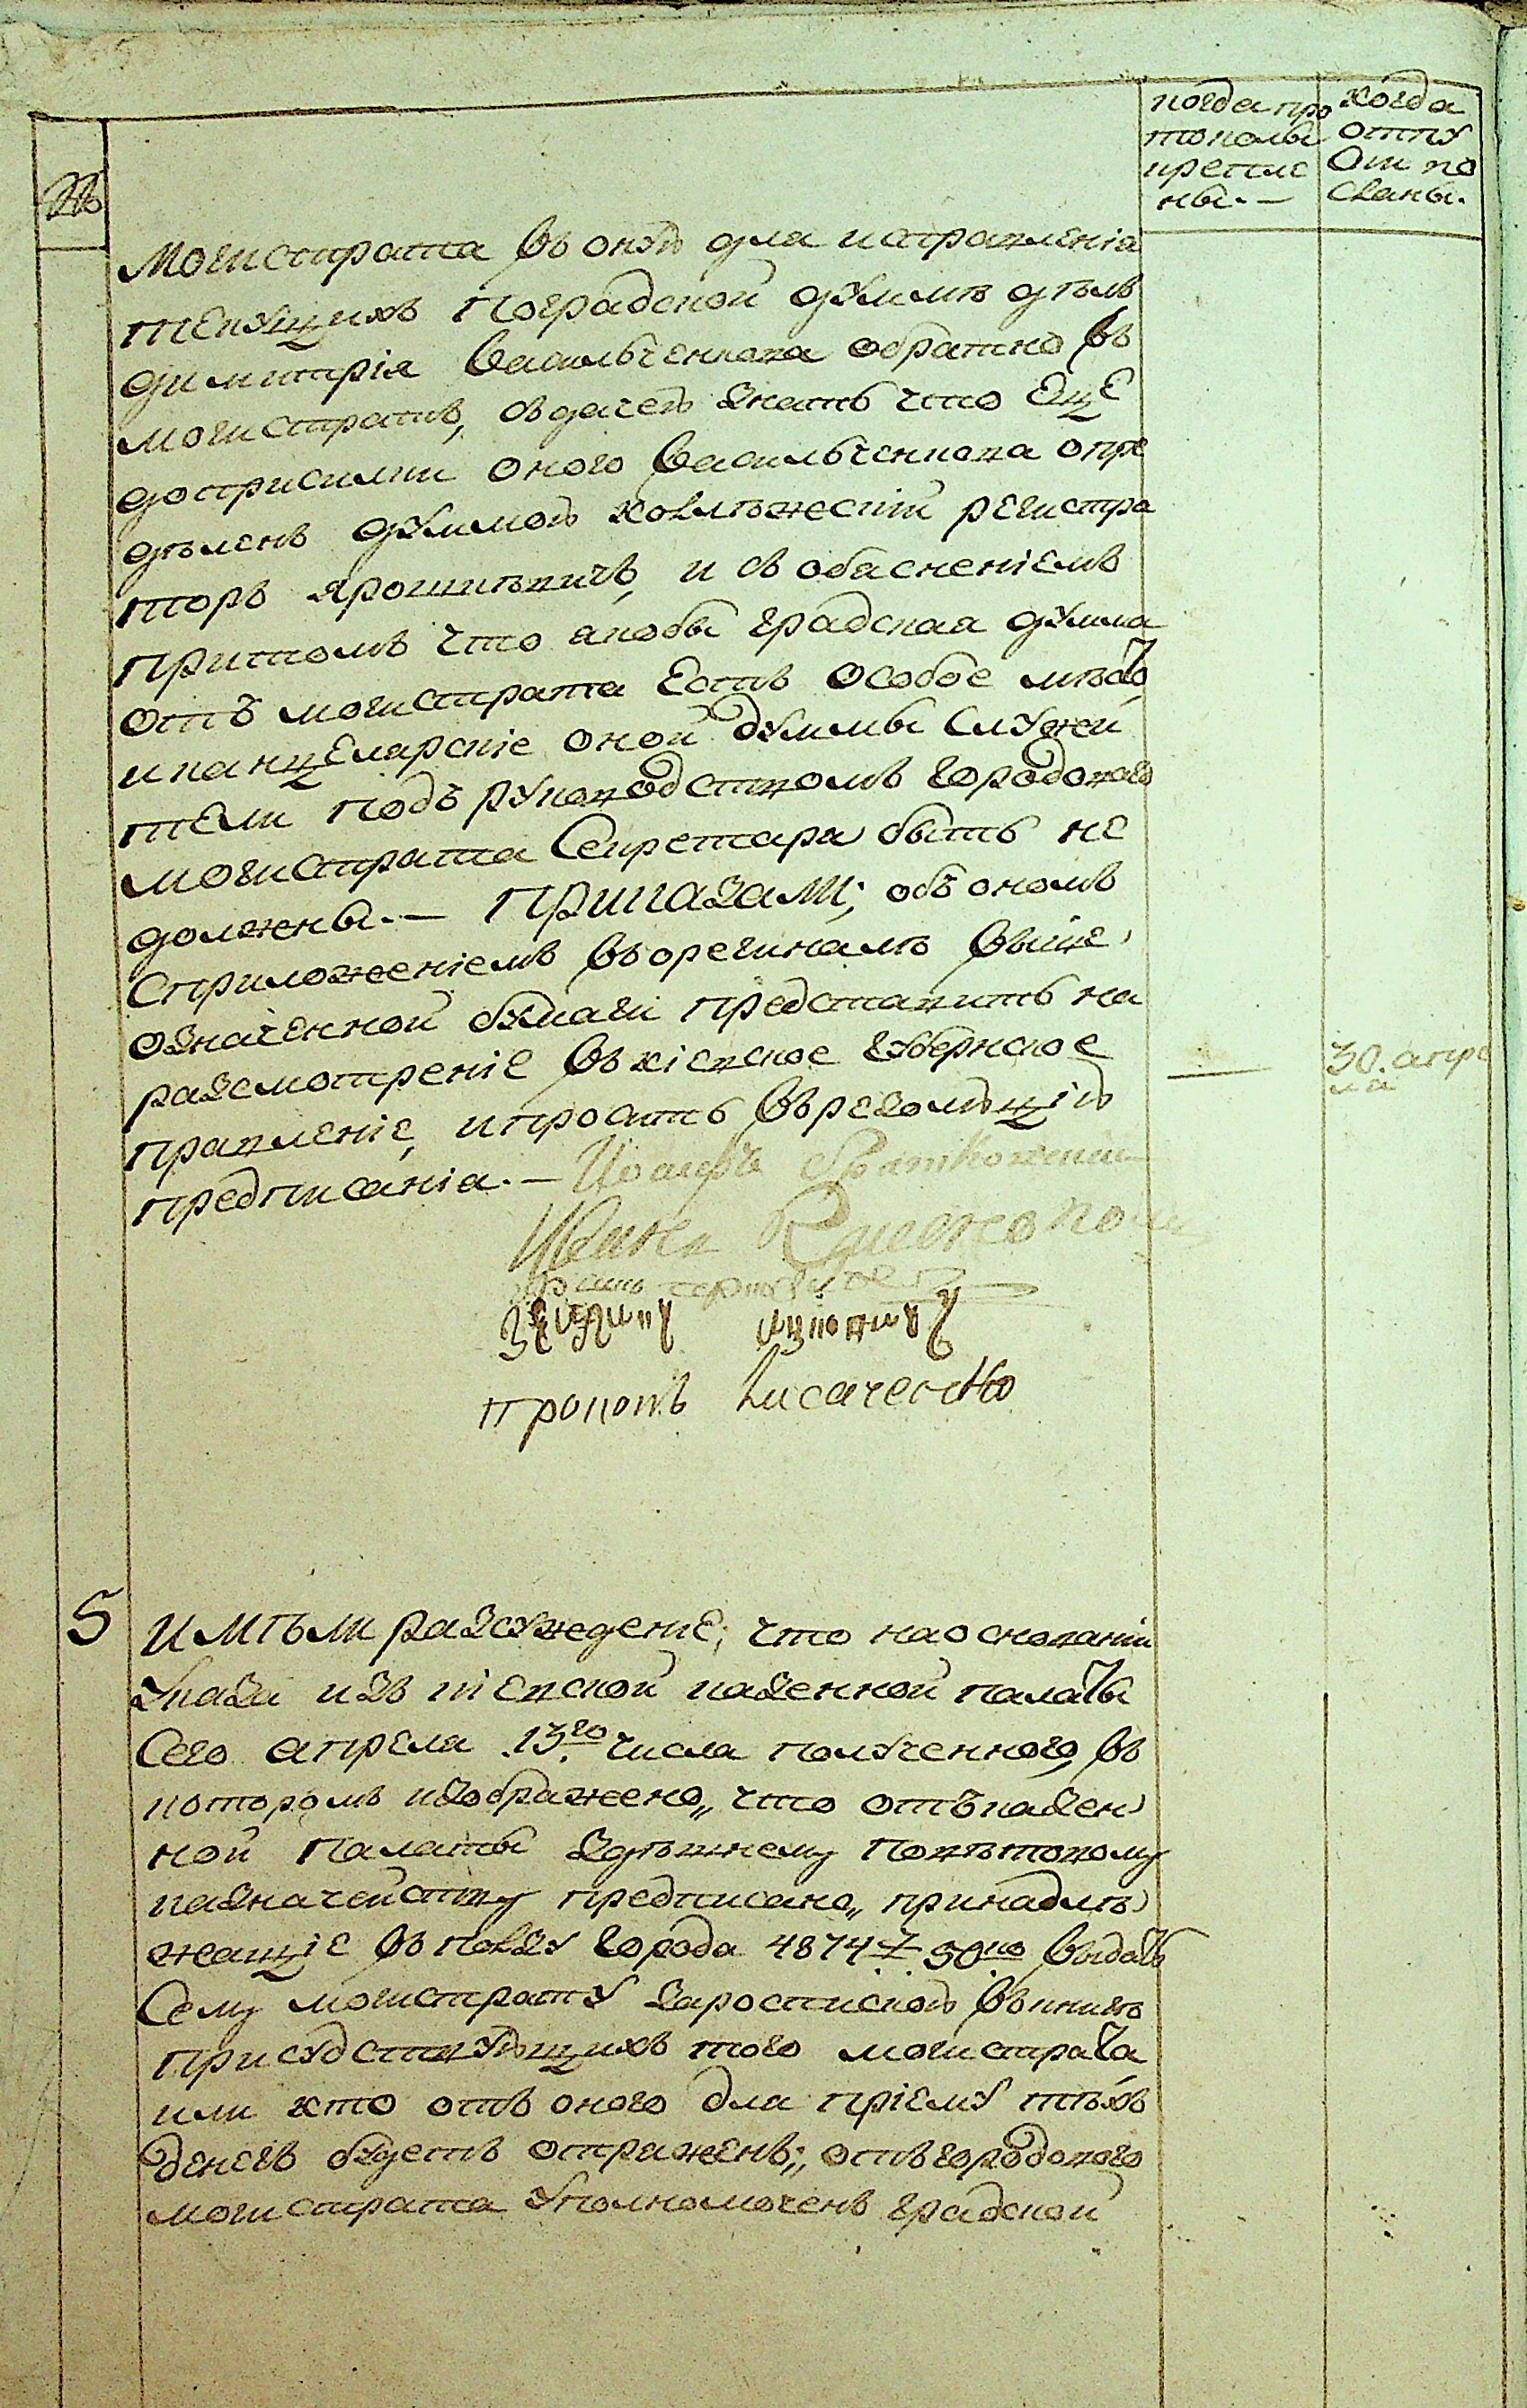 когда про
токолы
крепле
ны. —
когда
отпу
ски по
сланы.
№
могистрата въ оную для исправленія
текущихъ поградской думмѣ дѣлъ
димитрія Васильченкова обратно въ
могистратъ, здачею знать что Еще
доприсилки оного Васильченкова опре
дѣленъ думмою коллѣжескій регистра
торъ ярошѣвичъ, и съ обясненіемъ
притомъ что якобы градская думма
отъ могистрата Есть особое мѣсто
иканцЕлярскіе оной думмы служи
тели подъ руководствомъ городового
могистрата Секретаря быть не
должны. — приказали; объ ономъ
Сприложеніемъ въорегиналѣ выше
означенной бумаги представить на
разсмотреніЕ въкіевское губернское
правленіе, ипросить върезолюцію
предписанія. —
30. апре
ля
прокопъ Лисаченко
5
имѣли разсужденіЕ; что наоснованіи
Указа изъ кіевской казенной палаты
Сего апреля 13го числа полученного, въ
которомъ изображено„ что отъказен
ной палаты здѣшнему повѣтовому
казначейству предписано„ принадлѣ
жащіе въползу города 4874 7 50ко выдать
Сему могистрату заросписскою въкнигѣ
присудствующихъ того могистрата
или кто отъ оного для пріему тѣхъ
денегъ будетъ отряженъ;„ отъгородового
могистрата Уполномоченъ градской